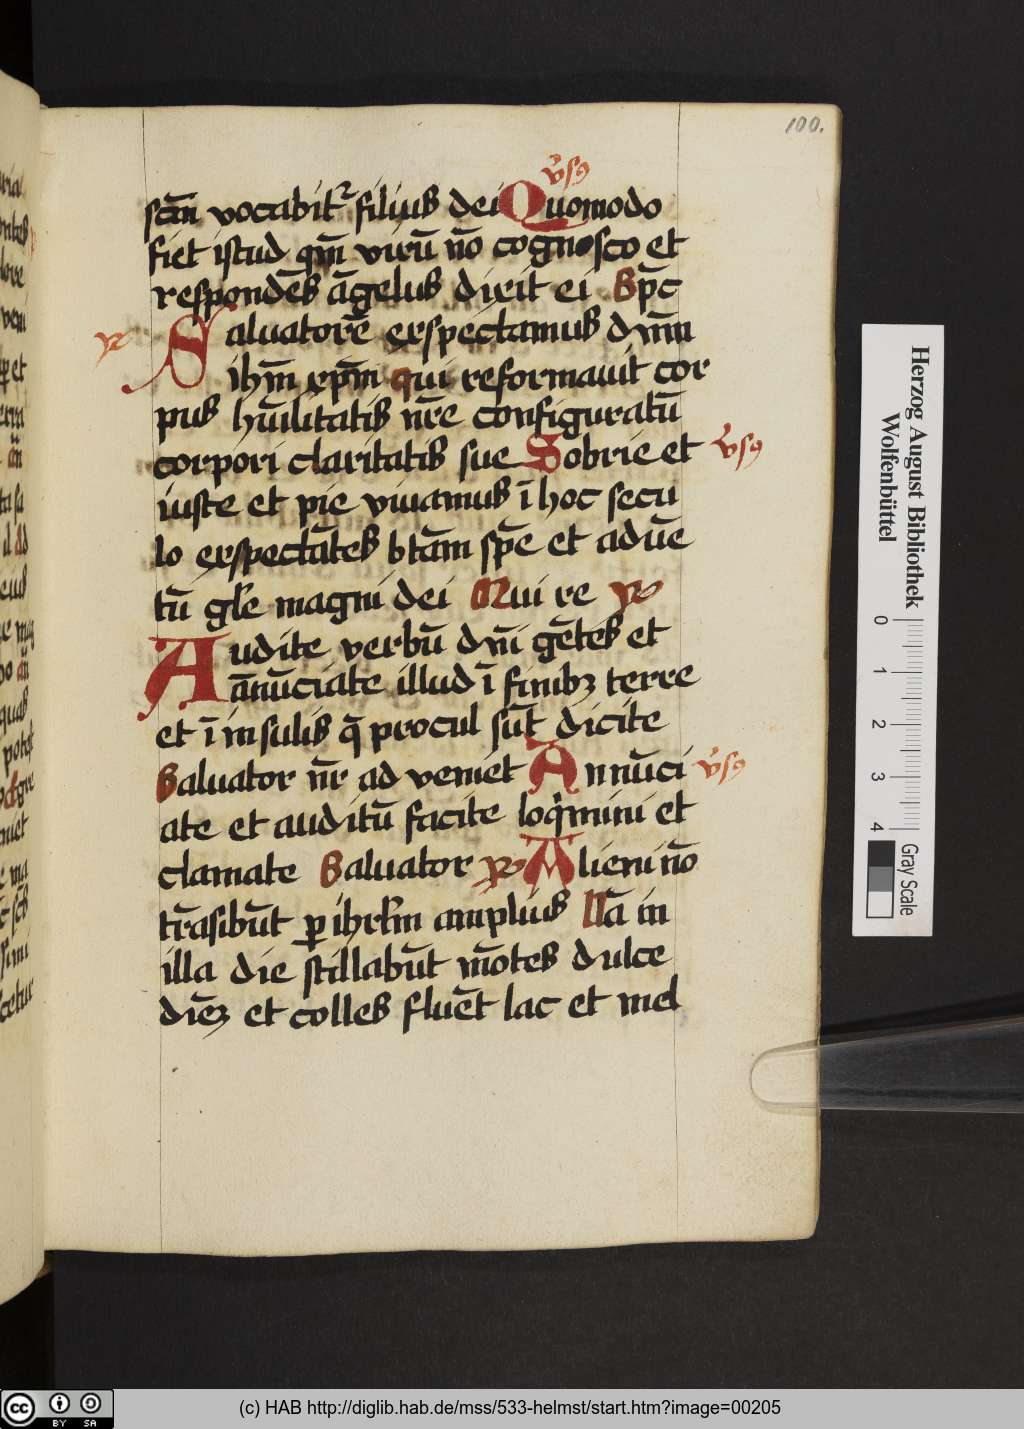 100.
vsꝯ
scm̄ vocabitr filius dei Quomodo
fiet istud qm̄ virū nō cognosco et
respondēs āgelus dixit ei Spc̄
℟ Saluatorē exspectamus dnm̄
ihm̄ xpm̄ qui reformauit cor
pus hūilitatis nr̄e configuratū
corpori claritatis sue Sobrie et vsꝯ
iuste et pie viuamus ī hoc secu
lo exspectātes btām spē et aduē
tū glē magni dei Qui re ℟
Audite verbū dnī gētes et
ānūciate illud ī finibꝫ terre
et ī insulis q̄ procul sūt dicite
Saluator nr̄ ad veniet Annūci vsꝯ
ate et auditū facite loqͥmini et
clamate Saluator ℟ Alieni nō
trāsibūt ꝑ ihrlm̄ amplius Nā in
illa die stillabūt mōtes dulce
diēꝫ et colles fluēt lac et mel
Herzog August Bibliothek
Wolfenbüttel
0 1 2 3 4
Gray Scale
cc BY SA
(c) HAB http://diglib.hab.de/mss/533-helmst/start.htm?image=00205